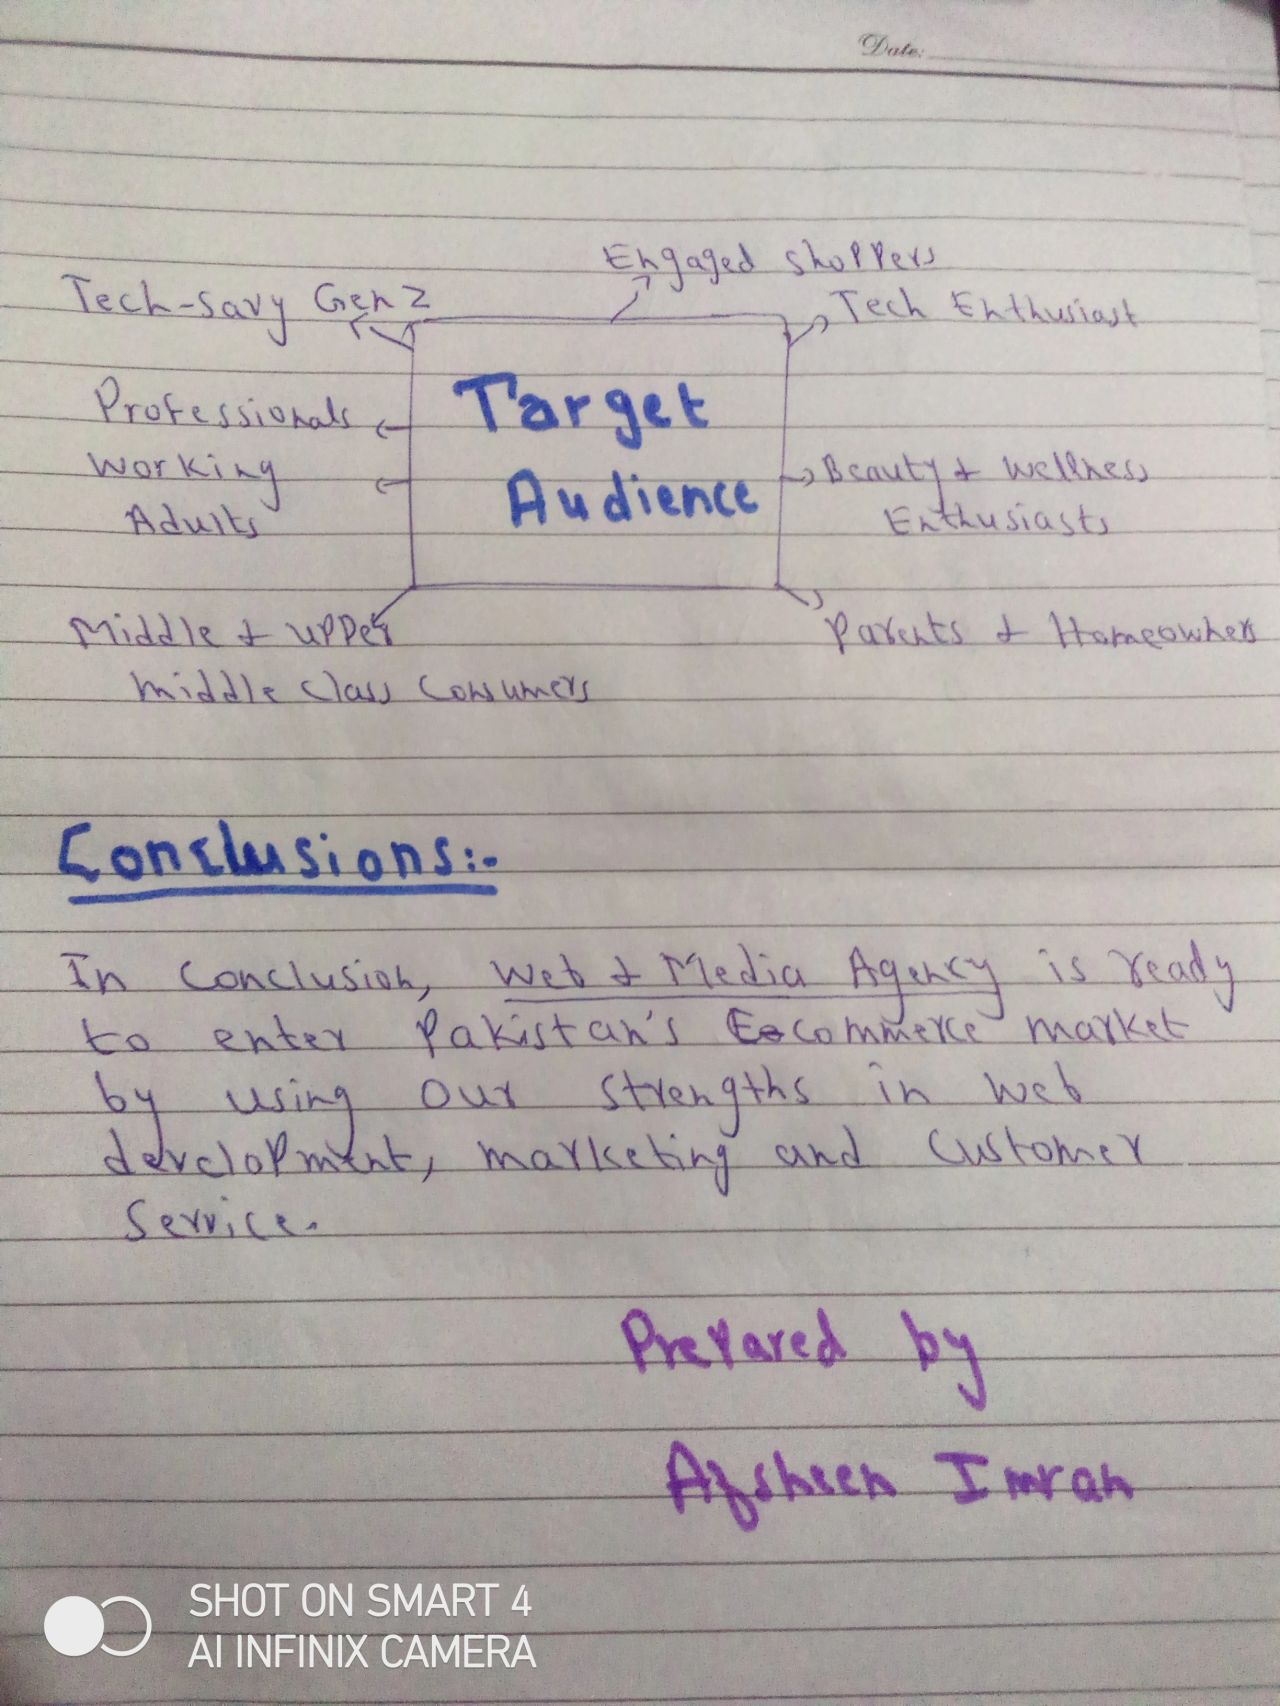 Date:
Engaged shoppers
Tech-savy Gen Z
Tech Enthusiast
Target
Professionals
Working
Beauty & Wellness
Audience
Adults
Enthusiasts
Middle & upper
Parents & Homeowners
middle class consumers
Conclusions:-
In conclusion, Web & Media Agency is ready
to enter Pakistan's E-commerce market
by using our strengths in web
development, marketing and customer
service.
Prepared by
Afsheen Imran
SHOT ON SMART 4
AI INFINIX CAMERA